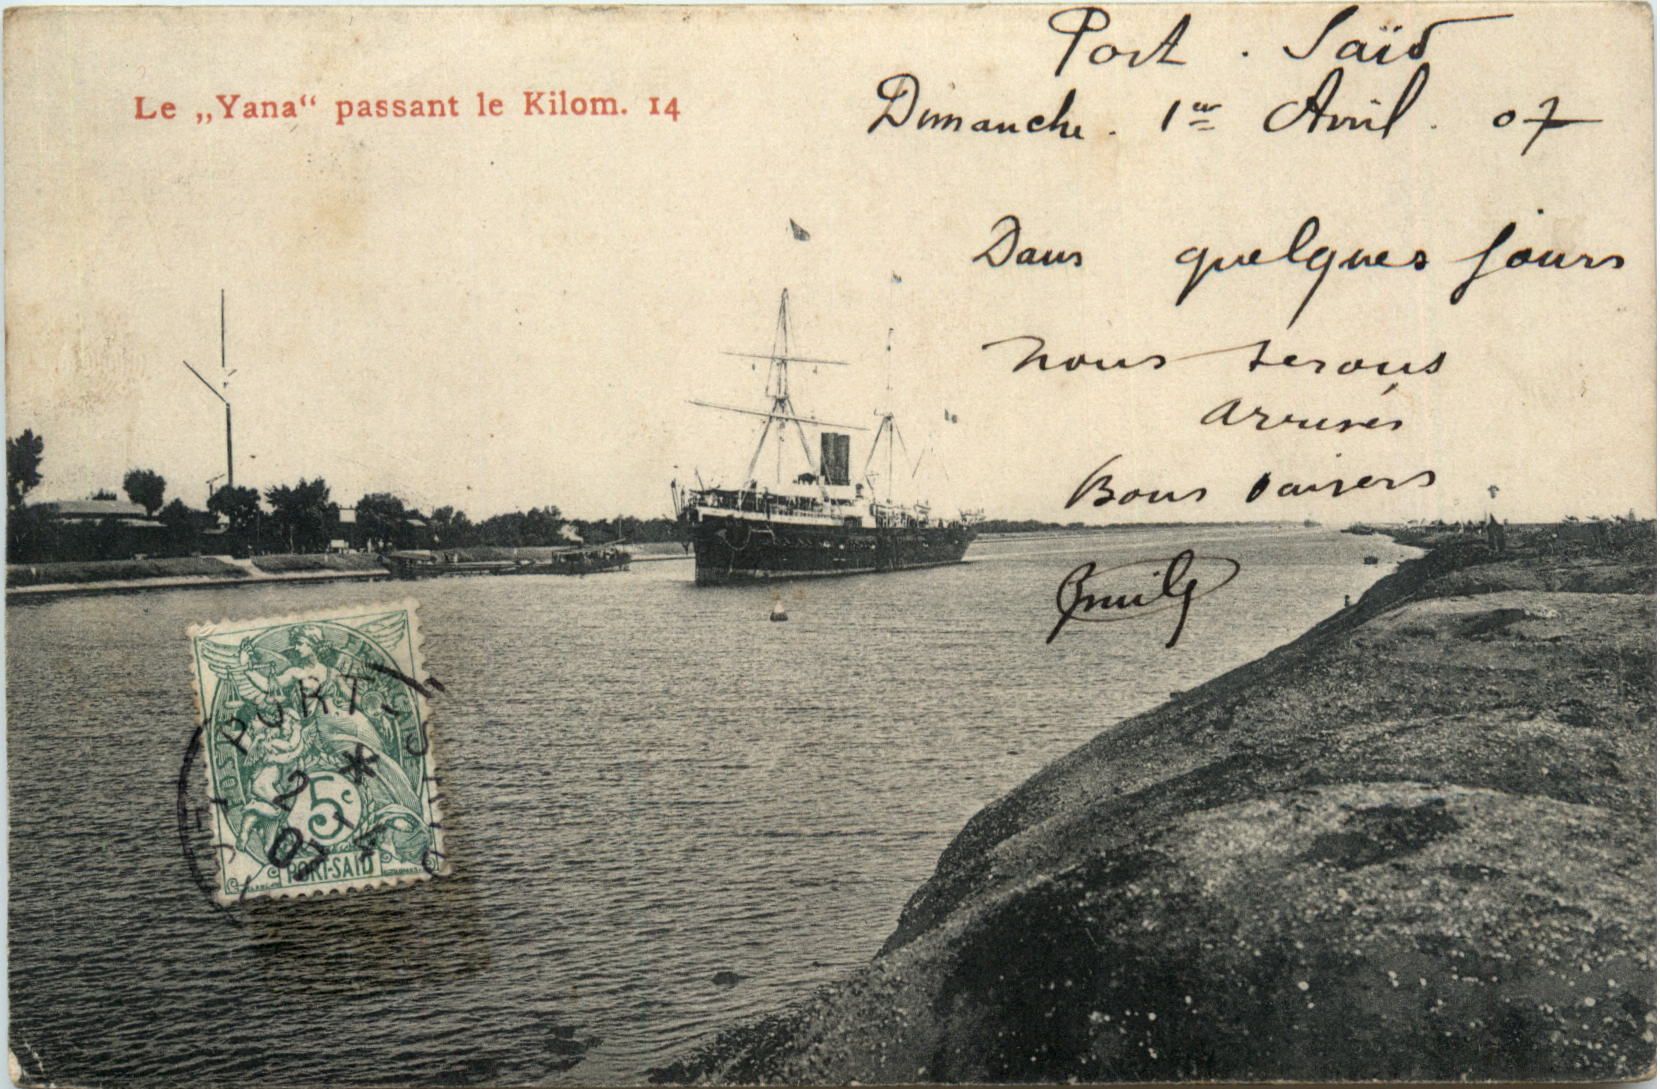 Le „Yana“ passant le Kilom. 14
Port. Saïd
Dimanche. 1er Avril. 07
Dans quelques jours
nous serons
arrivés
Bons baisers
5c
PORT-SAÏD
PORT SAID
2
07